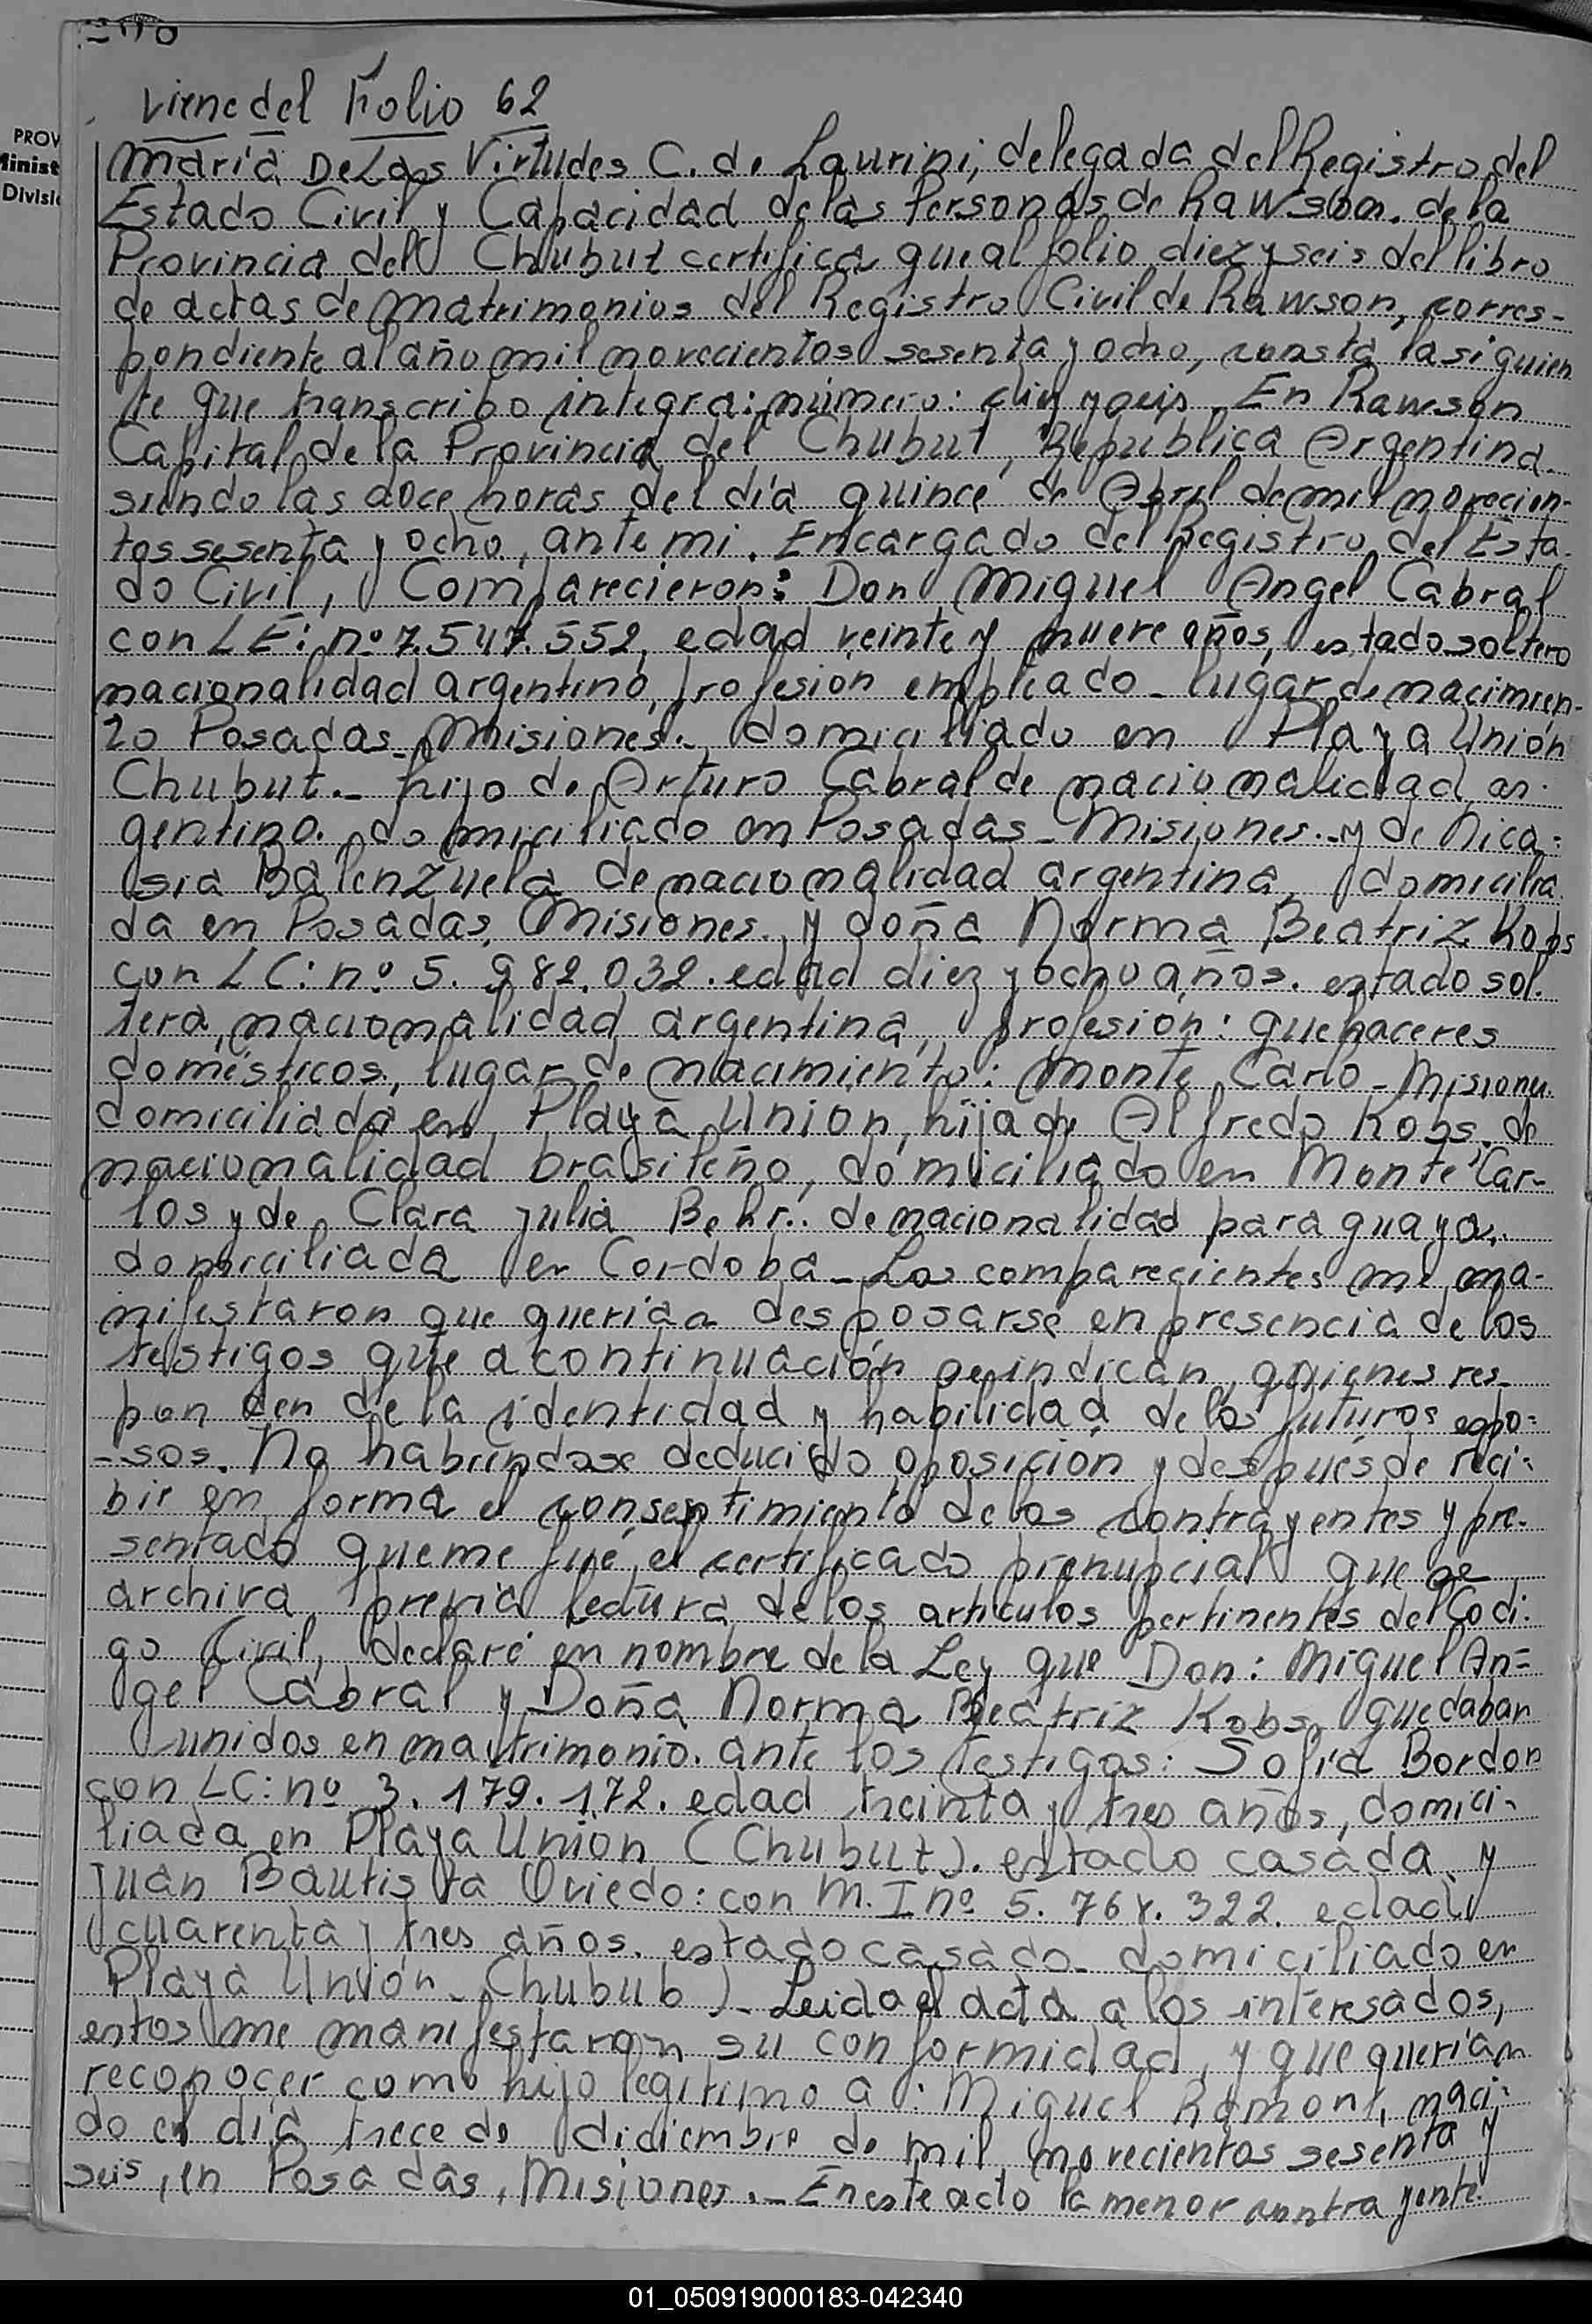 viene del Folio 62
PROV
Minist
Divisi
María De Las Virtudes C. de Laurini, delegada del Registro del
Estado Civil y Capacidad de las Personas de Rawson. de la
Provincia del Chubut certifica que al folio diez y seis del libro
de actas de matrimonios del Registro Civil de Rawson, corres-
pondiente al año mil novecientos sesenta y ocho, consta la siguien
te que transcribo integra: número: diez y seis. En Rawson
Capital de la Provincia del Chubut, Republica Argentina.
siendo las doce horas del día quince de Abril de mil novecien-
tos sesenta y ocho, ante mi. Encargado del Registro del Esta-
do Civil, Comparecieron: Don Miguel Angel Cabral
con LE: nº 7.547.552, edad veinte y nueve años, estado soltero
nacionalidad argentino, profesión empleado - lugar de nacimien-
to Posadas - Misiones., domiciliado en Playa Unión
Chubut.- hijo de Arturo Cabral de nacionalidad ar-
gentino. domiciliado en Posadas - Misiones.- y de Nica=
sia Balenzuela de nacionalidad argentina, domicilia
da en Posadas, Misiones., y doña Norma Beatriz Kobs
con LC: nº 5.982.032. edad diez y ocho años. estado sol.
tera, nacionalidad argentina, profesión: quehaceres
domésticos, lugar de nacimiento: Monte Carlo - Misiones.
domiciliada en Playa Union, hija de Alfredo Kobs. de
nacionalidad brasileño, domiciliado en Monte Car-
los y de Clara Julia Behr.. de nacionalidad paraguaya.
domiciliada en Cordoba - Los comparecientes me ma-
nifestaron que querian desposarse en presencia de los
testigos que a continuación se indican, quienes res-
pon den de la identidad y habilidad de los futuros espo=
-sos. No habiendose deducido oposición y después de reci-
bir en forma el consentimiento de los contrayentes y pre-
sentado que me fué el certificado prenupcial que se
archiva previa lectura de los articulos pertinentes del Codi-
go Civil, declaré en nombre de la Ley que Don: Miguel An=
gel Cabral y Doña Norma Beatriz Kobs, quedaban
unidos en matrimonio. ante los testigos: Sofia Bordon
con LC: nº 3.179.172. edad treinta y tres años, domici-
liada en Playa Unión (Chubut). estado casada y
Juan Bautista Oviedo: con M. I nº 5. 322. edad
cuarenta y tres años. estado casado - domiciliado en
Playa Unión - Chubub) - Leida el acta a los interesados,
estos me manifestaron su conformidad, y que querían
reconocer como hijo legitimo a: Miguel Ramont, naci-
do el día trece de didiembre de mil novecientos sesenta y
seis, en Posadas, Misiones.- En este acto la menor contrayente
01_050919000183-042340